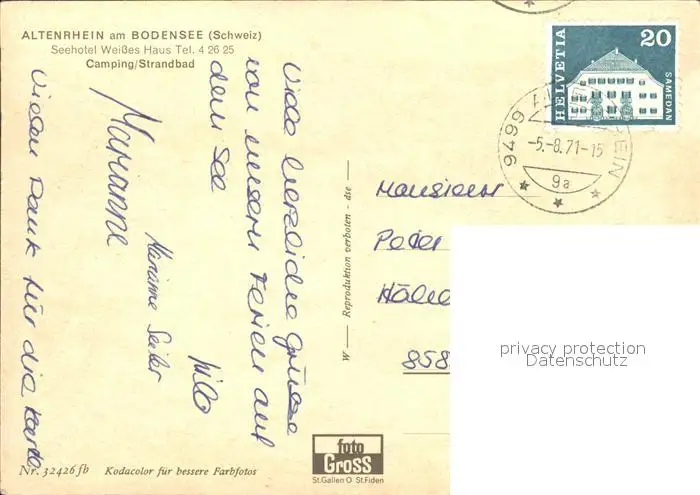 ALTENRHEIN am BODENSEE (Schweiz)
Seehotel Weißes Haus Tel. 4 26 25
Camping/Strandbad
HELVETIA
20
SAMEDAN
9499
-5.-8.71-15
9a
Viele herzliche Grüsse
von unsern Ferien auf
dem See
Marianne
Marianne Seiler
Vielen Dank für die Karte
Monsieur
Peter
858
W — Reproduktion verboten - dse —
privacy protection
Datenschutz
foto
GROSS
St.Gallen O St.Fiden
Nr. 32426 fb Kodacolor für bessere Farbfotos